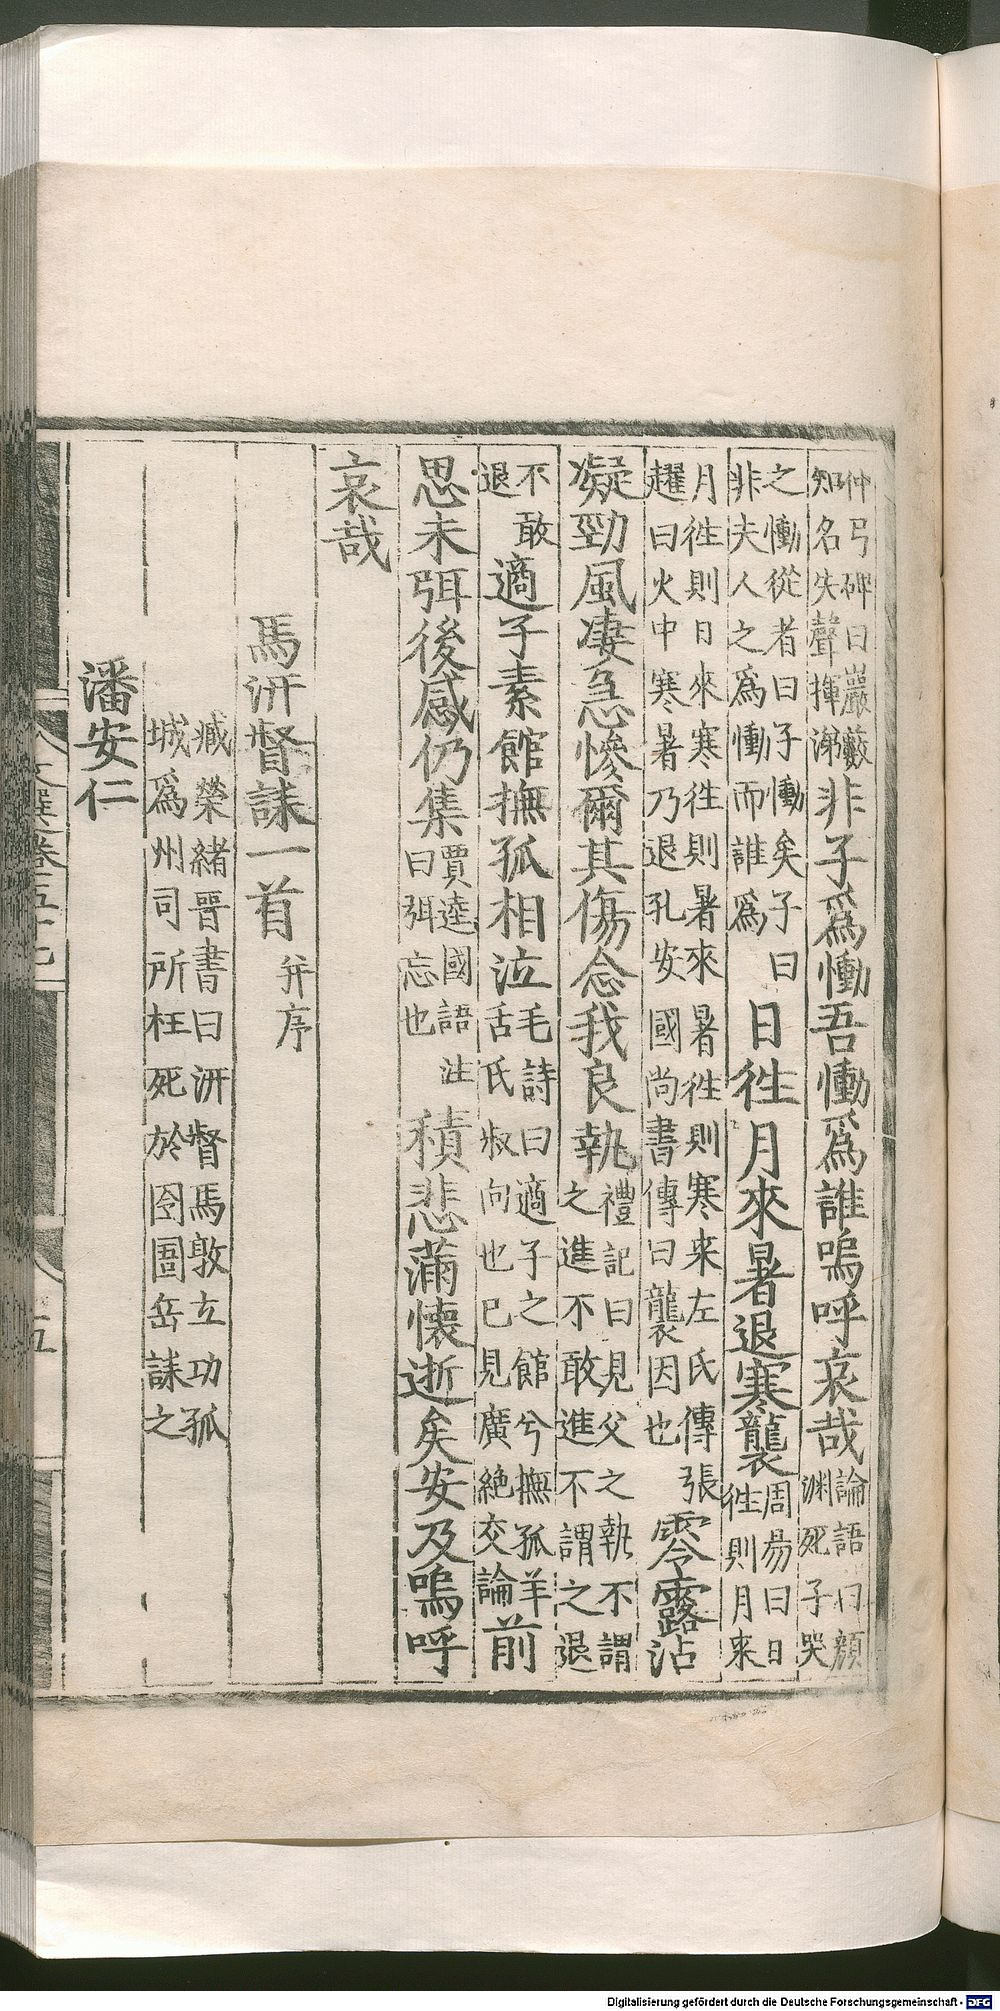 仲弓碑曰巖藪知名失聲揮涕非子爲慟吾慟爲誰嗚呼哀哉論語曰顔淵死子哭
之慟從者曰子慟矣子曰非夫人之爲慟而誰爲日徃月來暑退寒襲周昜曰日徃則月來
月徃則日來寒徃則暑來暑徃則寒来左氏傳張趯曰火中寒暑乃退孔安國尚書傳曰襲因也零露沾
凝勁風凄急慘爾其傷念我良執禮記曰見父之執不謂之進不敢進不謂之退
不敢退適子素館撫孤相泣毛詩曰適子之館兮撫孤羊舌氏叔向也已見廣絶交論前
思未弭後感仍集賈逵國語注曰弭忘也積悲滿懷逝矣安及嗚呼
哀哉
馬汧督誄一首并序
臧榮緒晋書曰汧督馬敦立功孤城爲州司所枉死於囹圄岳誄之
潘安仁
文選卷五十七
五
Digitalisierung gefördert durch die Deutsche Forschungsgemeinschaft - DFG